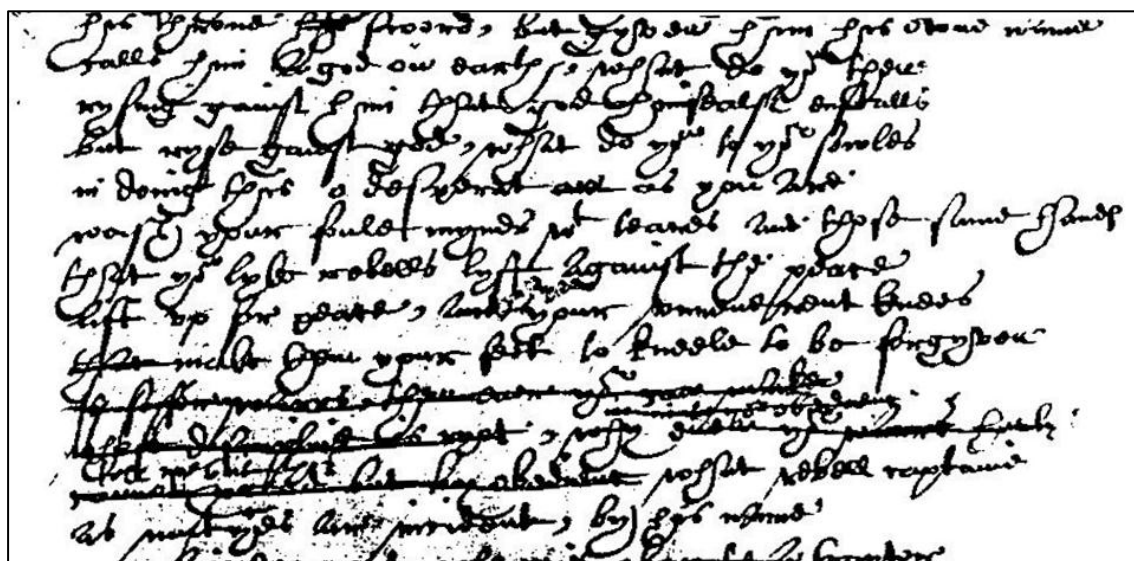 hys throne his sword, but gyven him his owne name
calls him a god on earth, what do yo then
rysing gainst him that god himsealf enstalls
but ryse gainst god, what do yo to yor sowles
in doing this o desperat ar as you are
wash your foule mynds wt teares and those same handes
that yo lyke rebells lyft against the peace
lift vp for peace, and your vnreuerent knees
that make them your feet to kneele to be forgyven
is safer warrs, then euer yo can make
in in to yor obedienc
whose discipline is ryot, why euen yor warrs hurly
tell me but this
cannot proceed but by obedienc what rebell captaine
as mutynes ar incident, by his name